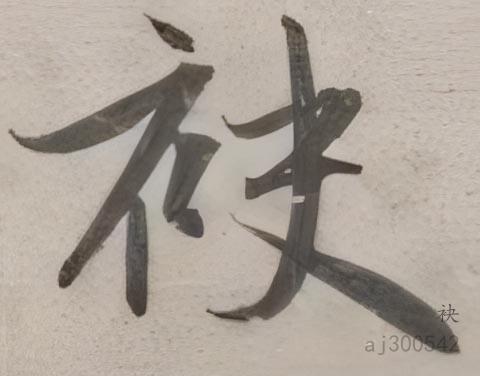 袂
袂
aj300542